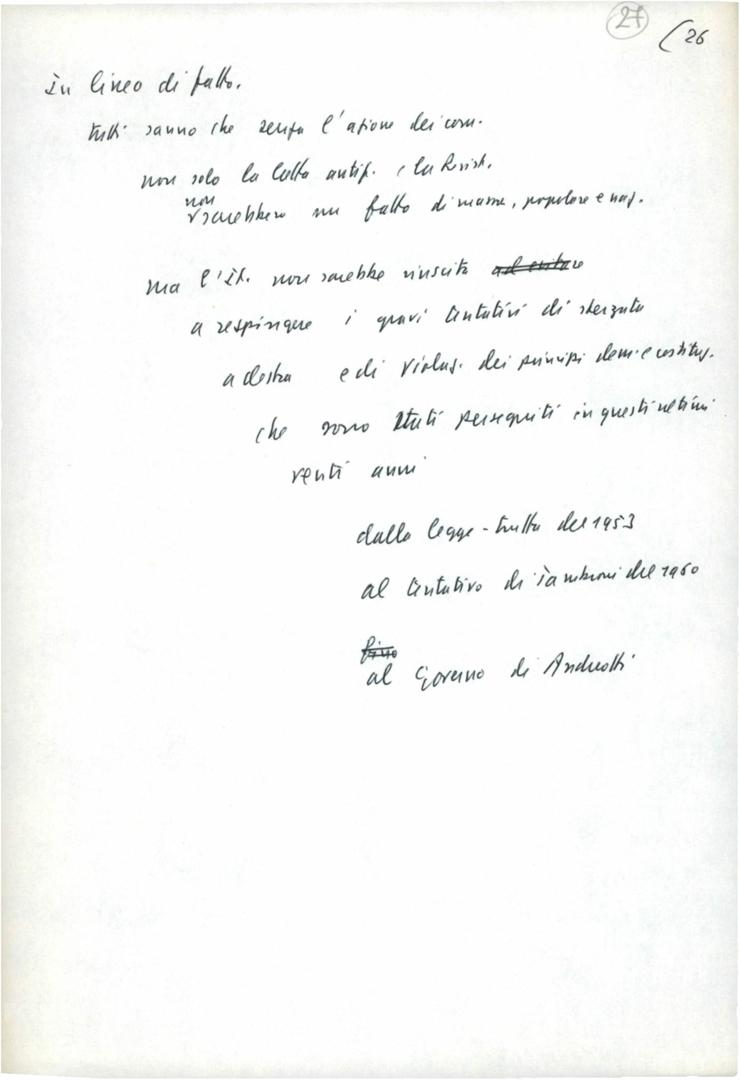 27
(26
In linea di fatto.
tutti sanno che senza l'azione dei com.
non solo la lotta antif. e la Resist.
non
sarebbero un fatto di massa, popolare e naz.
ma l'It. non sarebbe riuscita ad evitare
a respingere i gravi tentativi di sterzata
a destra e di violaz. dei principi dem. e costituz.
che sono stati perseguiti in questi ultimi
venti anni
dalla legge-truffa del 1953
al tentativo di Tambroni del 1960
fino
al Governo di Andreotti